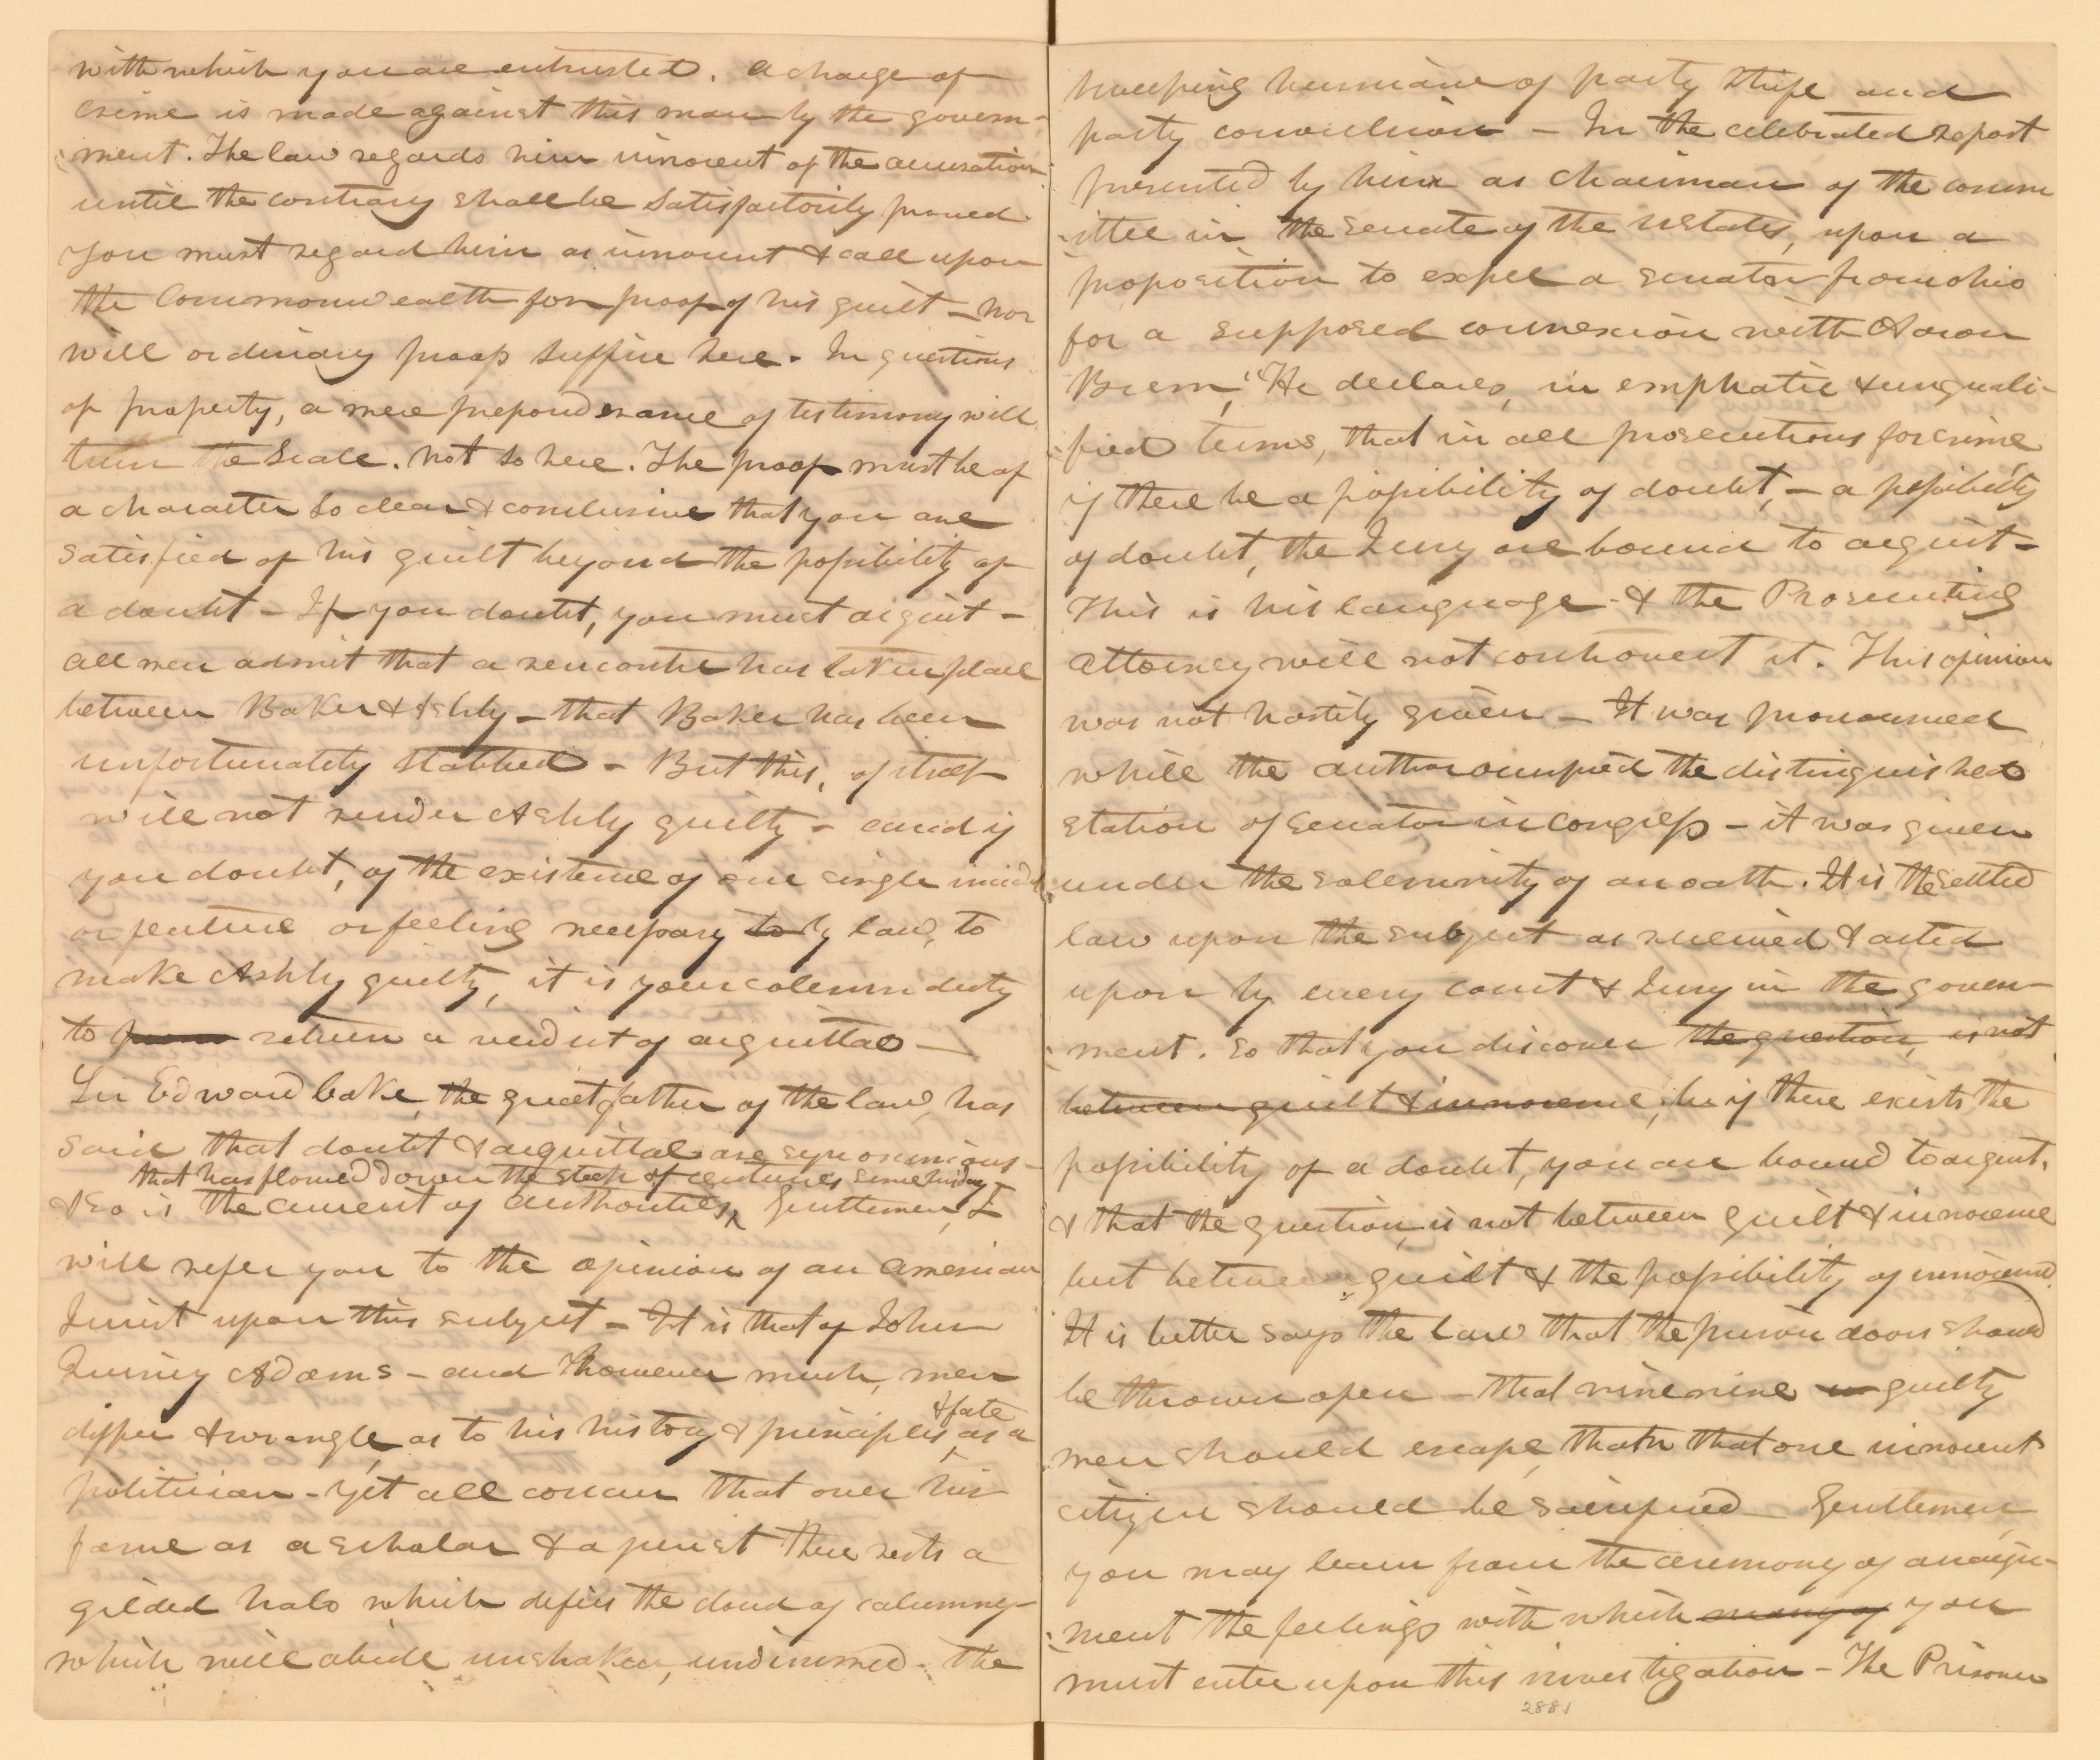 with which you are entrusted. A charge of
crime is made against this man by the govern-
ment. The law regards him innocent of the accusation
until the contrary shall be satisfactorily proved.
You must regard him as innocent & call upon
the Commonwealth for proof of his guilt – nor
will ordinary proof suffice here. In questions
of property, a mere preponderance of testimony will
turn the scale. Not so here. The proof must be of
a character so clear & conclusive that you are
satisfied of his guilt beyond the possibility of
a doubt – If you doubt, you must acquit –
All men admit that a rencontre has taken place
between Baker & Ashly – that Baker has been
unfortunately stabbed – But this, of itself
will not render Ashly guilty – and if
you doubt, of the existence of one single incident
or feature or feeling necessary to by law, to
make Ashly guilty, it is your solemn duty
to return a verdict of acquittal –
Sir Edward Coke, the great father of the law, has
said that doubt & acquittal are synonimous –
that has flowed down the steep of centuries since his day
& so is the current of authorities, Gentlemen, I
will refer you to the opinion of an American
Jurist upon this subject – It is that of John
Quincy Adams – and however much, men
& fate
differ & wrangle, as to his history & principles, as a
politician – yet all concur that over his
fame as a scholar & a jurist there rests a
gilded halo which defies the cloud of calumny –
which will abide unshaken, undimmed – the
sweeping hurricane of party strife and
party convulsion – In the celebrated report
presented by him as chairman of the comm
ittee in the senate of the UStates, upon a
proposition to expel a senator from ohio
for a supposed connexion with Aaron
Burr, He declares, in emphatic & unquali-
fied terms, that in all prosecutions for crime
if there be a possibility of doubt, – a possibility
of doubt, the Jury are bound to acquit –
This is his language – & the Prosecuting
attorney will not controvert it. This opinion
was not hastily given – It was pronounced
while the author occupied the distinguished
station of senator in congress – it was given
under the solemnity of an oath. It is the settled
law upon the subject as received & acted
upon by every court & Jury in the govern-
ment. So that you discover the question, is not
between guilt & innocence, but if there exists the
possibility of a doubt, you are bound to acquit,
& that the question, is not between guilt & innocence
but between guilt & the possibility of innocence.
It is better says the law that the prison doors should
be thrown open – that ninenine guilty
men should escape, than that one innocent
citizen should be sacrificed – Gentlemen
you may learn from the ceremony of arraign-
ment the feelings with which many of you
must enter upon this investigation – The Prisoner
2881